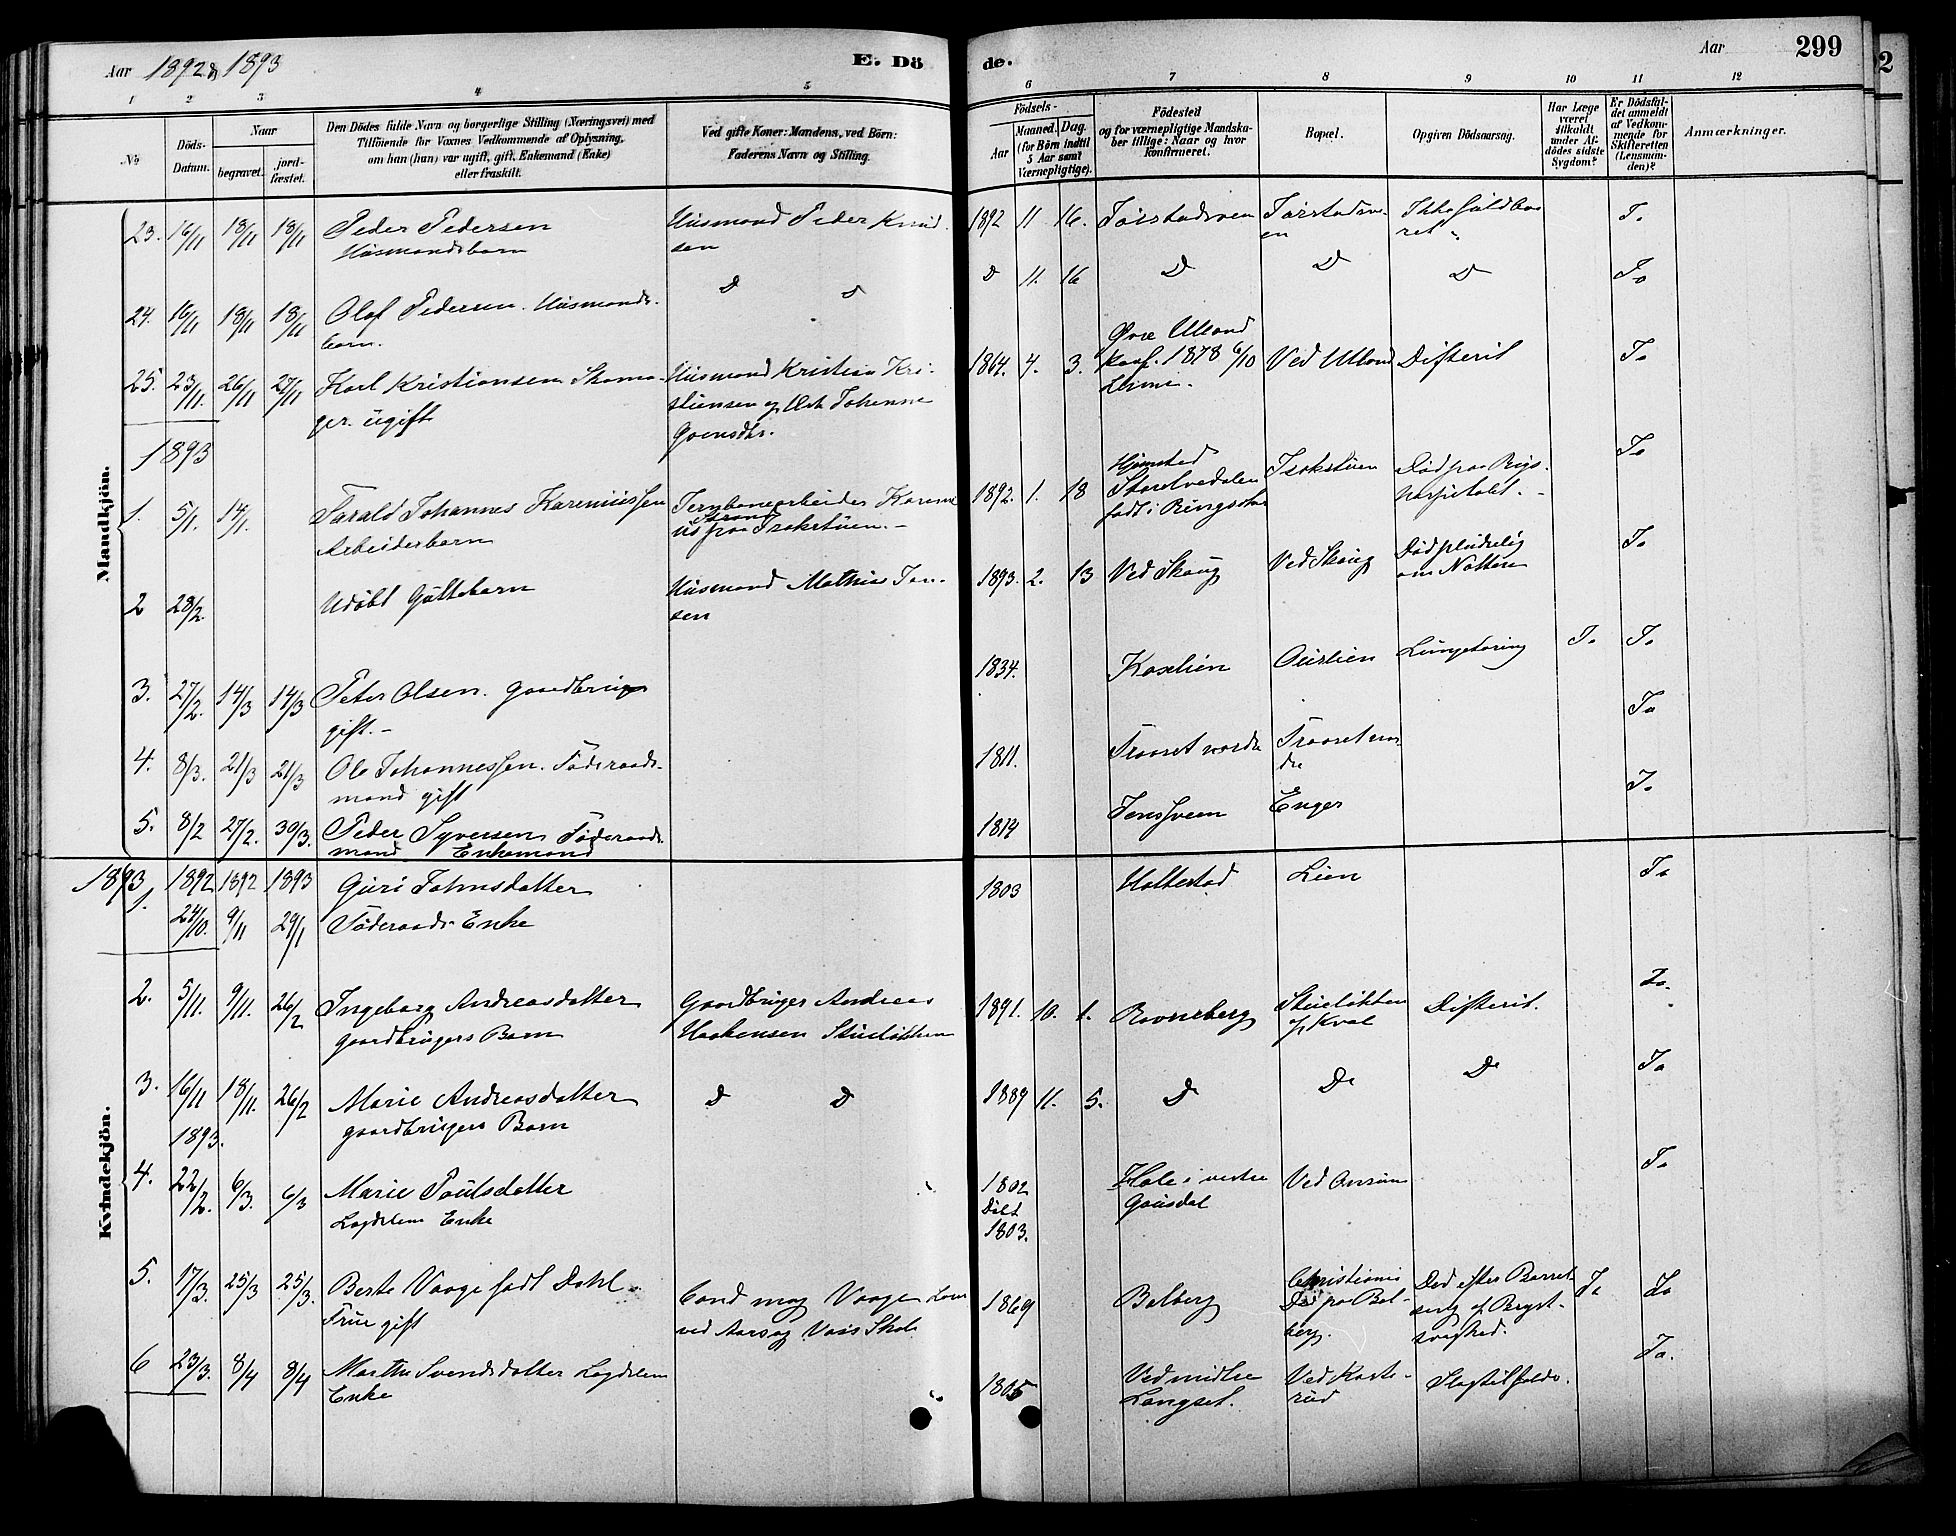 Aar 1892 & 1893
E. Dö
de.
Aar
299
1
2
3
4
5
6
7
8
9
10
11
12
No
Döds-
Datum.
Naar
begravet.
jord-
fæstet.
Den Dödes fulde Navn og borgerlige Stilling (Næringsvei) med
Tilföiende for Voxnes Vedkommende af Oplysning,
om han (hun) var ugift, gift, Enkemand (Enke)
eller fraskilt.
Ved gifte Koner: Mandens, ved Börn:
Faderens Navn og Stilling.
Födsels-
Aar
Maaned. Dag.
(for Börn indtil
5 Aar samt
Værnepligtige).
Födested
og for værnepligtige Mandska-
ber tillige: Naar og hvor
konfirmeret.
Bopæl.
Opgiven Dödsaarsag.
Har Læge
været
tilkaldt
under Af-
dödes sidste
Sygdom?
Er Dödsfal-
det anmeldt
af Vedkom-
mende for
Skifteretten
(Lensman-
den)?
Anmærkninger.
Mandkjön.
23. 16/11 18/11 18/11 Peder Pedersen
Husmandsbarn
Husmand Peder Knud-
sen
1892 11. 16.
Ikke fuldbaa
ret
Ja
24. 16/11 18/11 18/11 Olaf Pedersen. Husmands-
barn.
D D
D 11. 16 D D D Ja
25. 23/11. 26/11 27/11 Karl Kristiansen Skoma-
ger. ugift
Husmand Kristian Kri-
stiansen og Johanne
1864. 4. 3.
Konf. 1878 6/10
Ved Ulland Difterit Ja
1893
1. 5/1. 14/1. Johannes Kareniussen
Arbeiderbarn
Jernbanearbeider
1892. 1. 18
födt i Ringsaker
Död paa Rigs-
hospitalet. Ja
2 28/2. Udöbt Guttebarn
Husmand Mathias Jan-
sen
1893. 2. 13 Ved Skoug Ved Skoug Död pludselig
om Natten Ja
3. 27/2. 14/3 14/3 Peter Olsen. Gaardbruger
gift.
1834. Lungetæring Ja Ja
4. 8/3. 21/3 21/3 Ole Johannessen. Föderaads-
mand gift
1811. Ja
5. 8/2 27/2. 30/3. Peder Syversen Föderaads-
mand Enkemand
1814 Jenssveen Enger Ja
Kvindekjön.
1893
1. 1892 1892 1893 Guri Johnsdatter
24/10. 9/11 29/1 Föderaads Enke
1803 Holtestad Lien Ja
2. 5/11. 9/11. 26/2 Ingeborg Andreasdatter
Gaardbrugers Barn
Gaardbruger Andreas
Haakensen Stuelökken
1891. 10. 1. Rovneberg Stuelökken
af Kval
Difterit. Ja
3. 16/11 18/11. 26/2 Marie Andreasdatter
Gaardbrugers Barn
D D
1889 11. 5. D Do Do Ja
1893.
4. 22/2. 6/3. 6/3 Marie Poulsdatter
Lægdslem Enke
1802
Döbt
1803.
Hole i vestre
Gausdal
Ja
5. 17/3. 25/3 25/3. Berte Vaage födt Dahl
Frue gift
Cand mag Vaage
ved Aars og Voss Skole
1869 Balberg Christiania
Död paa Bal-
berg.
Död efter Barsel-
seng af Bryst-
svaghed.
Ja Ja
6 23/3. 8/4 8/4 Marthe Svendsdatter Lægdslem
Enke
1805 Ved midtre
Langset.
Slagtilfælde. Ja.